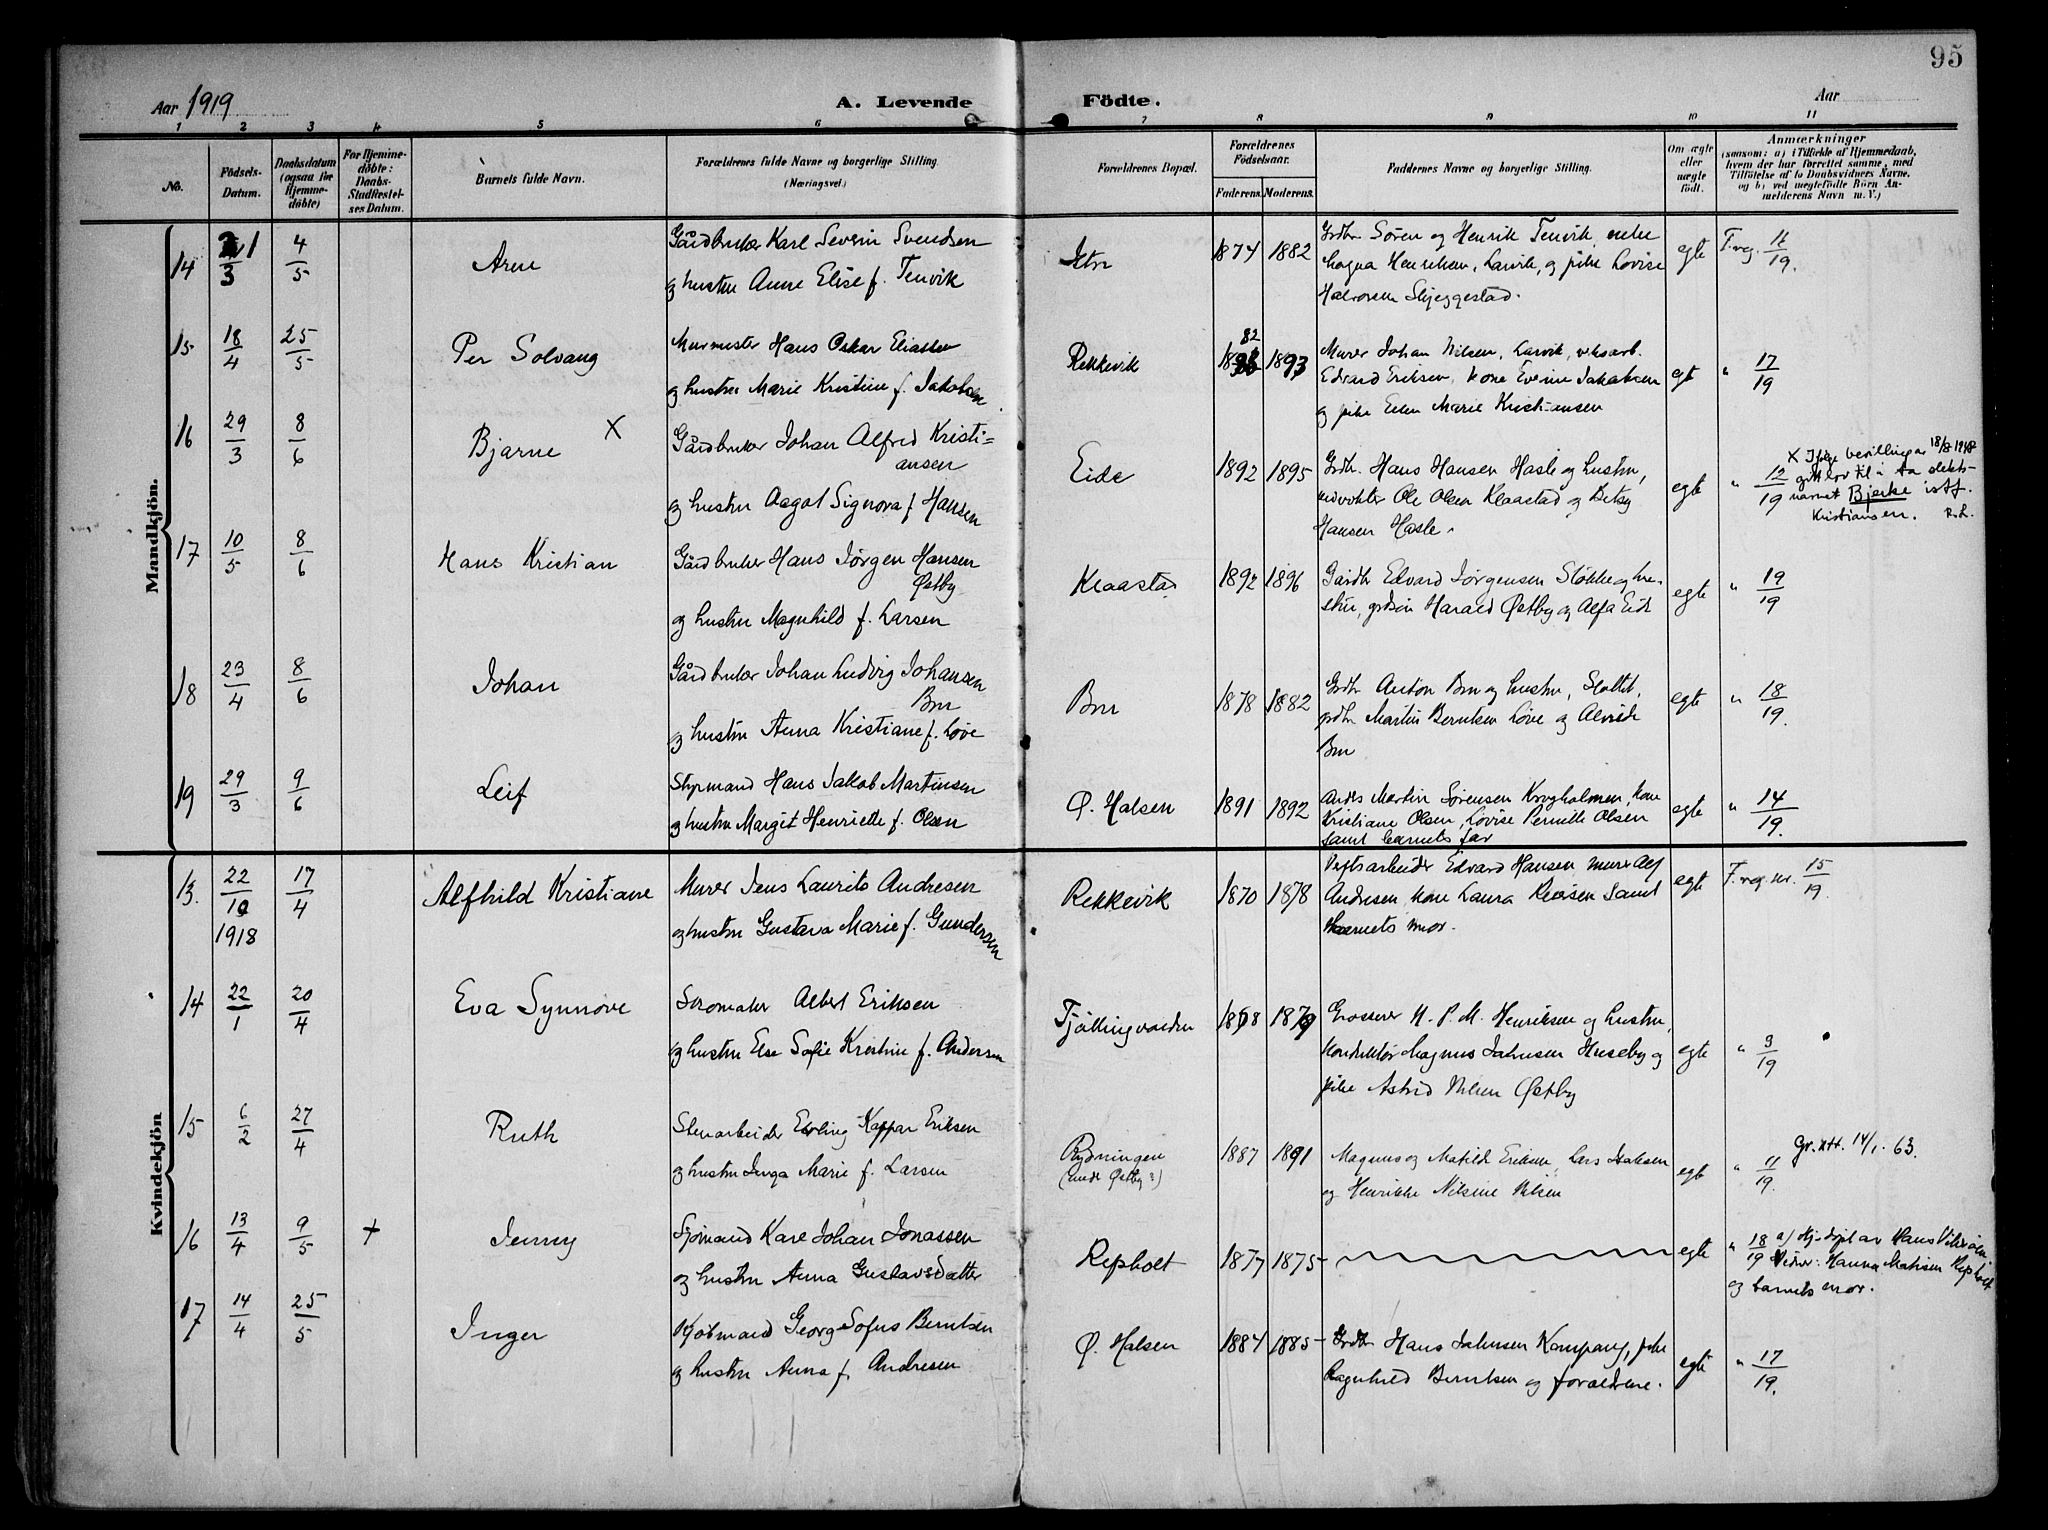 95
Aar 1919
A. Levende
Födte.
Aar
1 2 3 4 5 6 7 8 9 10 11
No.
Födsels-Datum.
Daabsdatum (ogsaa for Hjemme-döbte)
For Hjemme-döbte: Daabs-Stadfæstel-ses Datum.
Barnets fulde Navn.
Forældrenes fulde Navne og borgerlige Stilling. (Næringsvei.)
Forældrenes Bopæl.
Forældrenes Födselsaar.
Faderens. Moderens.
Faddernes Navne og borgerlige Stilling.
Om ægte eller uægte födt.
Anmærkninger
(saasom: a) i Tilfælde af Hjemmedaab,
hvem der har forrettet samme, med
Tilföielse af to Daabsvidners Navne,
og b) ved uægtefödte Börn An-
melderens Navn m. V.)
Mandkjön.
14 21/3 4/5 Arne Gårdbruker Karl Severin Svendsen
og hustru Anne Elise f. Tenvik
Istre 1874 1882 Grdbr Sören og Henrik Tenvik, enke
Magna Henriksen, Larvik, og pike Lovise
Halvorsen Skjeggestad.
egte F. reg. 16/19.
15 18/4 25/5 Per Solvang Murmester Hans Oskar Eliassen
og hustru Marie Kristine f. Jakobsen.
Rekkevik 82 1893 Murer Johan Nilsen, Larvik, verksarb.
Edvard Eriksen, kone Evine Jakobsen
og pike Ellen Marie Kristiansen
egt " 17/19
16 29/3 8/6 Bjarne X Gårdbruker Johan Alfred Kristi=
ansen
og hustru Aagot Signora f. Hansen
Eide 1892 1895 Grdbr. Hans Hansen Hasle og hustru,
Ole Olsen Klaastad og Betsy
Hansen Hasle.
egte " 12/19
X Ifølge bevilling av 18/8 1948
gitt lov til å ta slekts-
navnet Bjerke istf.
Kristiansen. R.L.
17 10/5 8/6 Hans Kristian Gårdbruker Hans Jørgen Hansen
Østby
og hustru Magnhild f. Larsen
Klaastad 1892 1896 Gårdbr Edvard Jørgensen Støkke og hu-
stru, grdsön Harald Østby og Alfa Eide
egte " 19/19
18 23/4 8/6 Johan Gårdbruker Johan Ludvig Johansen
Bru
og hustru Anna Kristiane f. Løve
Bru 1878 1882 Grdbr Anton Bru og hustru,
grdbr Martin Berntsen Løve og
Bru
egte " 18/19.
19 29/3 9/6 Leif Styrmand Hans Jakob Martinsen
og hustru Margit Henriette f. Olsen
Ø. Halsen 1891 1892 Anders Martin Sørensen Krogholmen, kone
Kristiane Olsen, Lovise Pernille Olsen
samt barnets far
egte " 14/19.
Kvindekjön
13. 22/10 1918 17/4 Alfhild Kristiane Murer Jens Laurits Andresen
og hustru Gustava Marie f. Gundersen
Rekkevik 1870 1878 Veftsarbeider Edvard Hansen murer Alf
Andresen kone Laura samt
barnets mor.
egte F. reg nr. 15/19.
14 22/1 20/4 Eva Synnöve Albert Eriksen
og hustru Else Sofie Kristine f. Andersen
Tjöllingvolden 1879 Grosserer H. P. M. Henriksen og hustru,
konduktör Magnus Jahnsen Huseby og
pike Astrid Nilsen Østby
egte " 3/19
15 6/2 27/4 Ruth Stenarbeider Erling Kaspar Eriksen
og hustru Inga Marie f. Larsen
Rydningen
(undr Østby?)
1887 1891 Magnus og Matild Eriksen, Lars Isaksen
og Henrikke Nilsine Nilsen
egte " 11/19. Gr. att. 14/1. 63.
16 13/4 9/5 + Jenny Sjömand Karl Johan Jonassen
og hustru Anna Gustavsdatter
Repholt 1877 1875
egte " 18/19 a/ Hj. döpt av Hans
Vidner: Hanna Mathisen Repholt
og barnets mor.
17 14/4 25/5 Inger Kjöbmand Georg Sofus Berntsen
og hustru Anna f. Andresen
Ø. Halsen 1884 1885 Grdbr Hans Jahnsen Kampang, pike
Ragnhild Berntsen og foreldrene.
egte " 17/19.